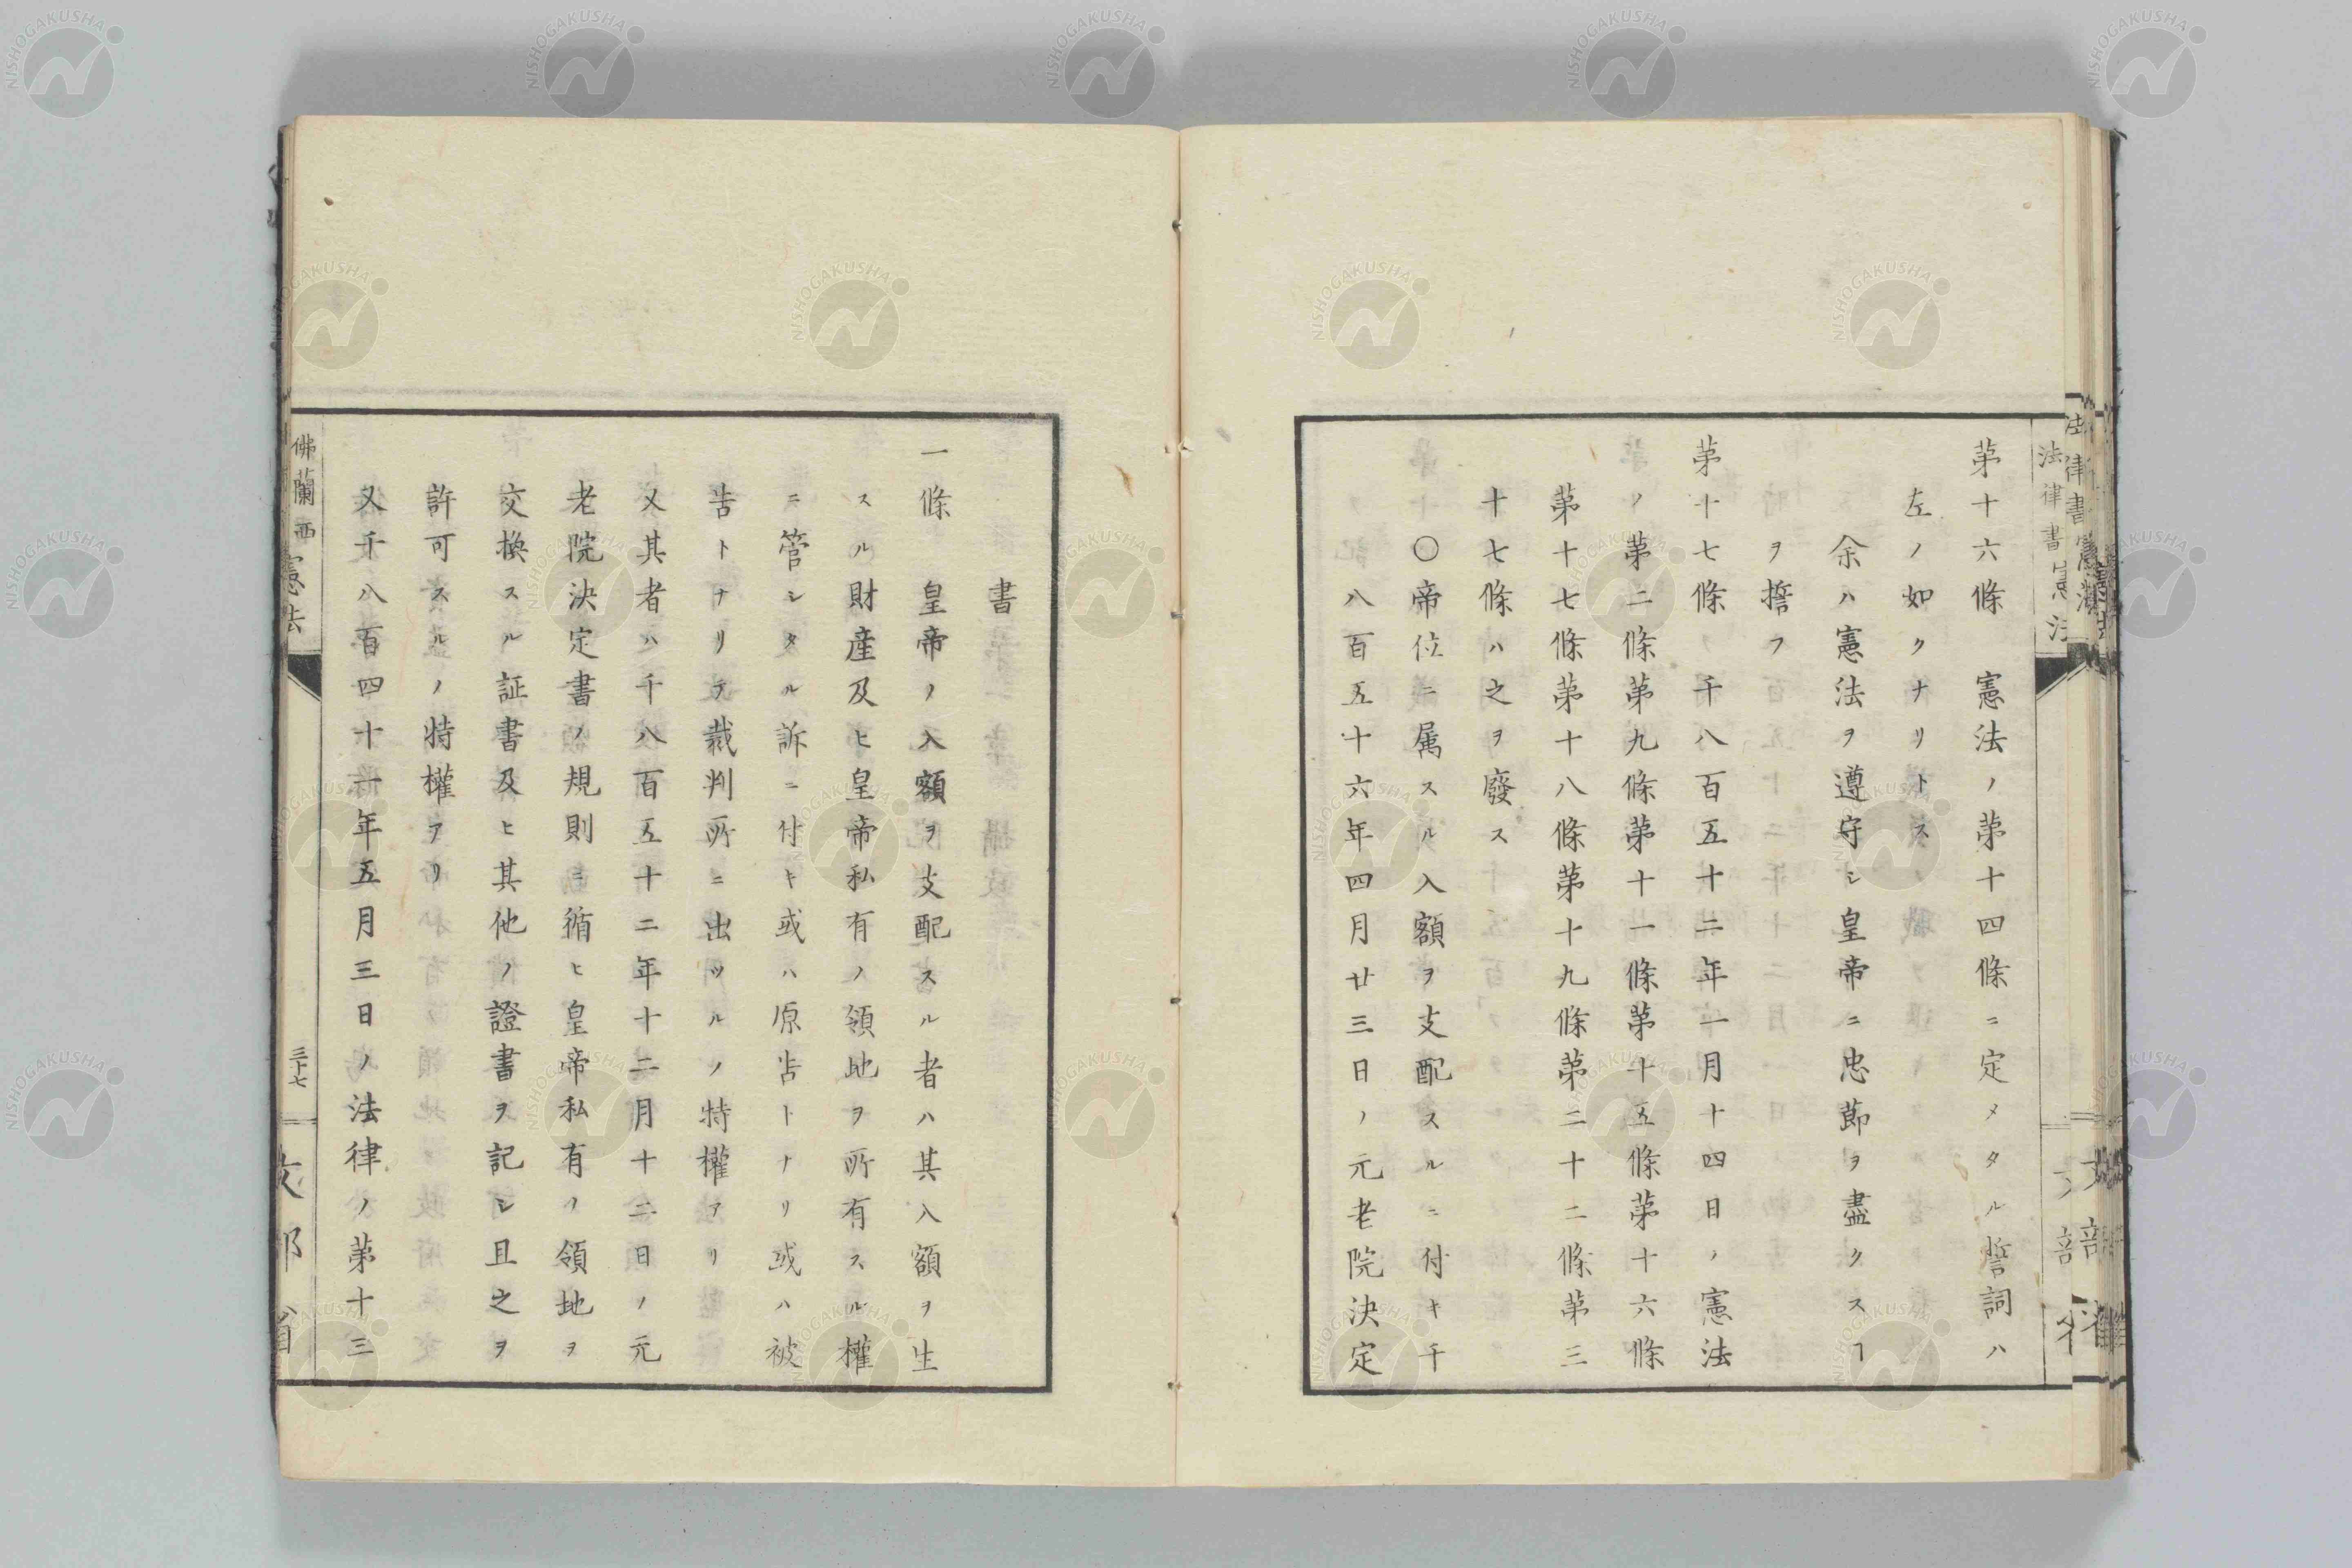 第十六條　憲法ノ第十四條ニ定メタル誓詞ハ
左ノ如クナリトス
余ハ憲法ヲ遵守シ皇帝ニ忠節ヲ盡クスヿ
ヲ誓フ
第十七條　千八百五十二年一月十四日ノ憲法
ノ第二條第九條第十一條第十五條第十六條
第十七條第十八條第十九條第二十二條第三
十七條ハ之ヲ廢ス
〇帝位ニ属スル入額ヲ支配スルニ付キ千
八百五十六年四月廿三日ノ元老院決定
書
一條　皇帝ノ入額ヲ支配スル者ハ其入額ヲ生
スル財産及ヒ皇帝私有ノ領地ヲ所有スル權
ニ管シタル訴ニ付キ或ハ原告トナリ或ハ被
告トナリテ裁判所ニ出ツルノ特權アリ
又其者ハ千八百五十二年十二月十二日ノ元
老院決定書ノ規則ニ循ヒ皇帝私有ノ領地ヲ
交換スル証書及ヒ其他ノ證書ヲ記シ且之ヲ
許可スルノ特權アリ
又千八百四十一年五月三日ノ法律ノ第十三
佛蘭西憲法
三十七
文部省
法律書憲法
NISHOGAKUSHA